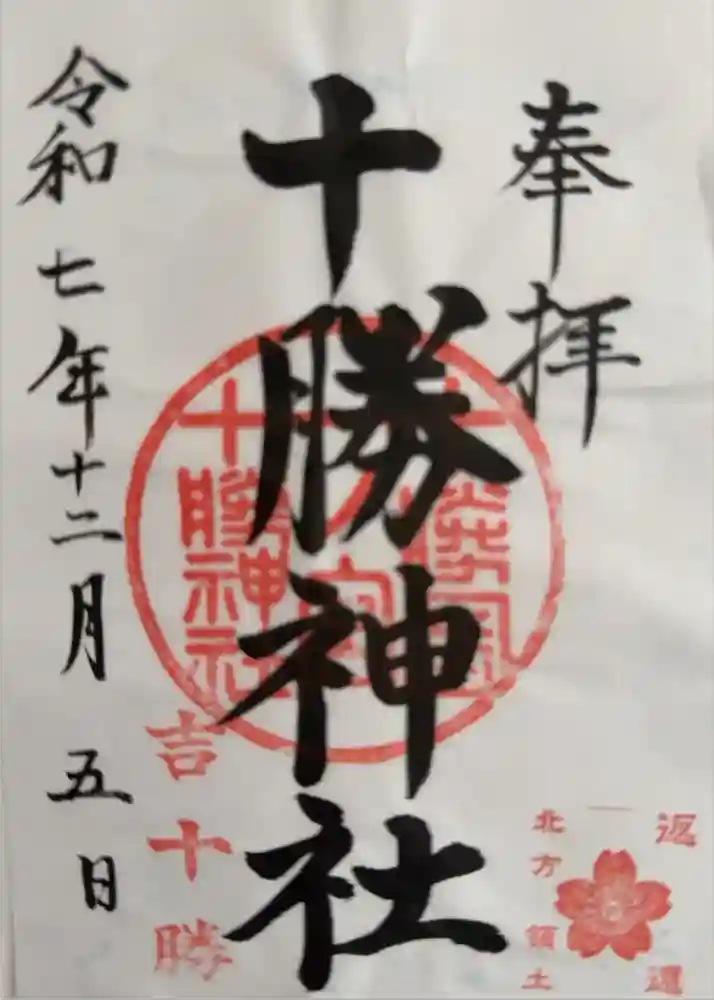 奉拝
十勝神社
令和七年十二月五日
十勝神社
吉十勝
北方領土
返還